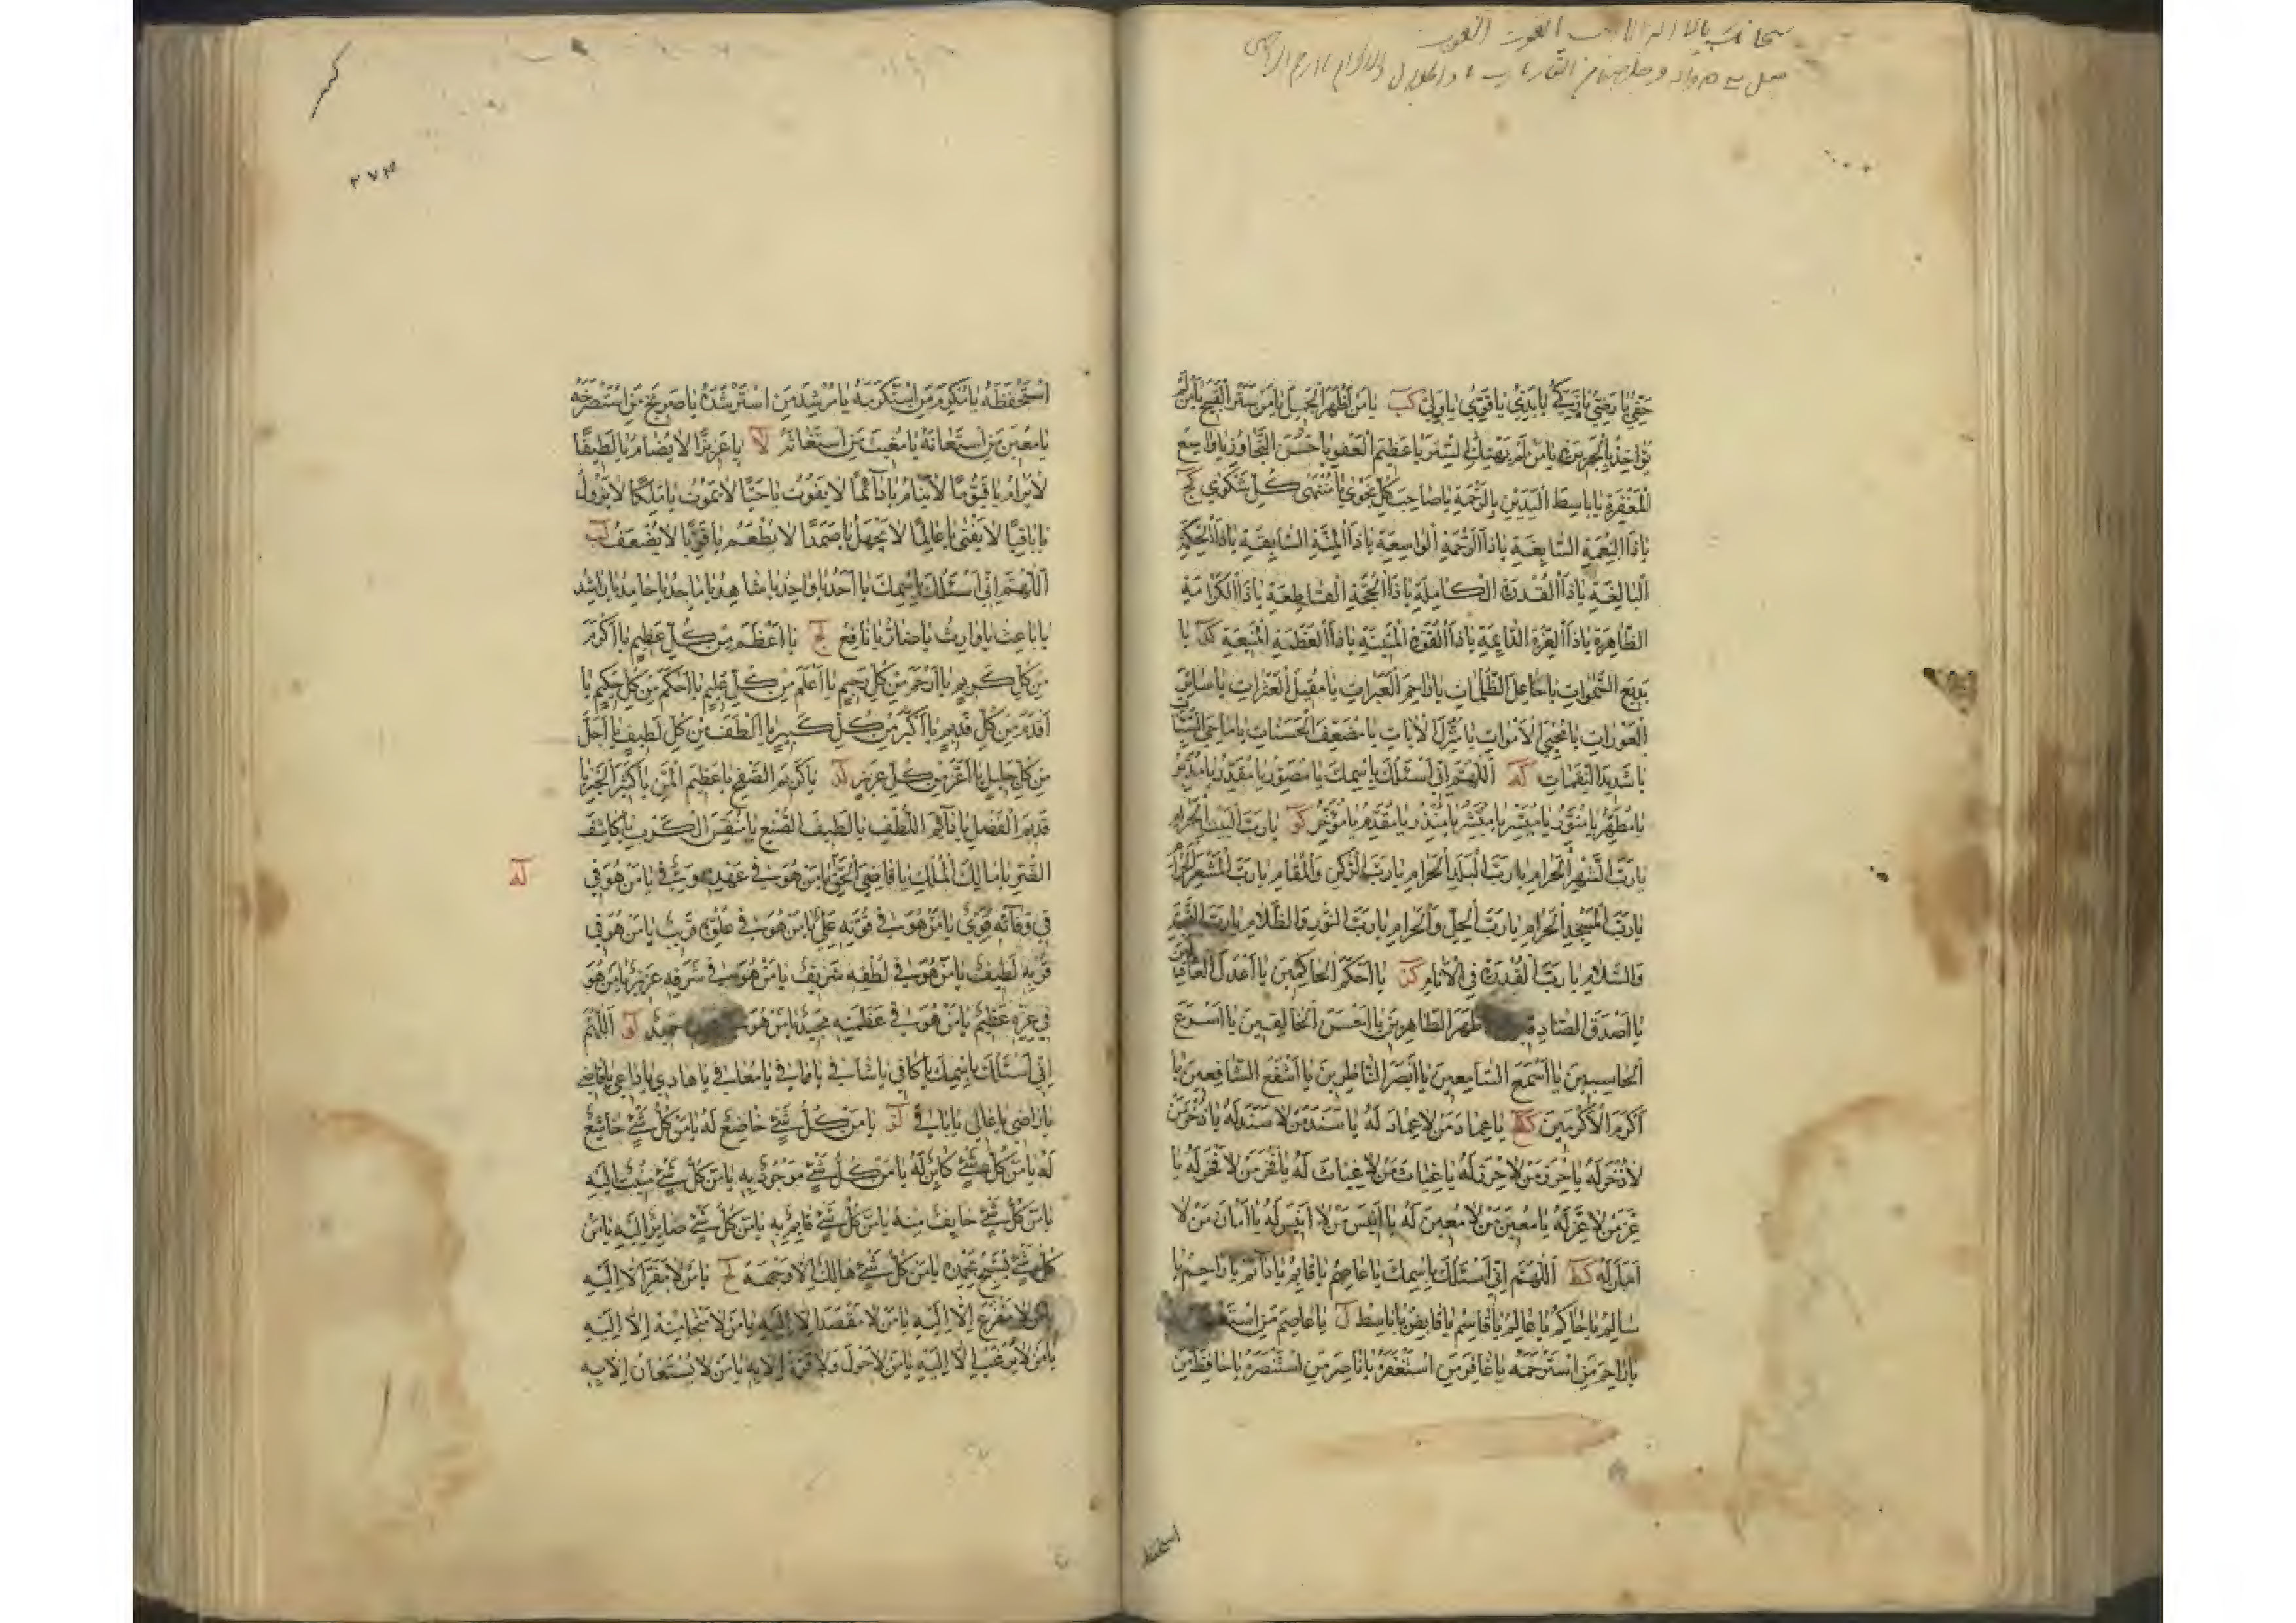 سبحانک یا لا اله الا انت الغوث الغوث
حَفِيُّ يَا رَضِيُّ يَا زَكِيُّ يَا بَدِيُّ يَا قَوِيُّ يَا وَلِيُّ كب يَا مَنْ أَظْهَرَ الْجَمِيلَ يَا مَنْ سَتَرَ الْقَبِيحَ يَا مَنْ لَمْ
يُؤَاخِذْ بِالْجَرِيرَةِ يَا مَنْ لَمْ يَهْتِكِ السِّتْرَ يَا عَظِيمَ الْعَفْوِ يَا حَسَنَ التَّجَاوُزِ يَا وَاسِعَ
الْمَغْفِرَةِ يَا بَاسِطَ الْيَدَيْنِ بِالرَّحْمَةِ يَا صَاحِبَ كُلِّ نَجْوَى يَا مُنْتَهَى كُلِّ شَكْوَى كج
يَا ذَا النِّعْمَةِ السَّابِغَةِ يَا ذَا الرَّحْمَةِ الْوَاسِعَةِ يَا ذَا الْمِنَّةِ السَّابِقَةِ يَا ذَا الْحِكْمَةِ
الْبَالِغَةِ يَا ذَا الْقُدْرَةِ الْكَامِلَةِ يَا ذَا الْحُجَّةِ الْقَاطِعَةِ يَا ذَا الْكَرَامَةِ
الظَّاهِرَةِ يَا ذَا الْعِزَّةِ الدَّائِمَةِ يَا ذَا الْقُوَّةِ الْمَتِينَةِ يَا ذَا الْعَظَمَةِ الْمَنِيعَةِ كد يَا
بَدِيعَ السَّمٰوَاتِ يَا جَاعِلَ الظُّلُمَاتِ يَا رَاحِمَ الْعَبَرَاتِ يَا مُقِيلَ الْعَثَرَاتِ يَا سَاتِرَ
الْعَوْرَاتِ يَا مُحْيِيَ الْأَمْوَاتِ يَا مُنْزِلَ الْآيَاتِ يَا مُضَعِّفَ الْحَسَنَاتِ يَا مَاحِيَ السَّيِّئَات
يَا شَدِيدَ النَّقِمَاتِ كه اَللّٰهُمَّ إِنِّي أَسْئَلُكَ بِاسْمِكَ يَا مُصَوِّرُ يَا مُقَدِّرُ يَا مُدَبِّرُ
يَا مُطَهِّرُ يَا مُنَوِّرُ يَا مُيَسِّرُ يَا مُبَشِّرُ يَا مُنْذِرُ يَا مُقَدِّمُ يَا مُؤَخِّرُ كو يَا رَبَّ الْبَيْتِ الْحَرَامِ
يَا رَبَّ الشَّهْرِ الْحَرَامِ يَا رَبَّ الْبَلَدِ الْحَرَامِ يَا رَبَّ الرُّكْنِ وَالْمَقَامِ يَا رَبَّ الْمَشْعَرِ الْحَرَامِ
يَا رَبَّ الْمَسْجِدِ الْحَرَامِ يَا رَبَّ الْحِلِّ وَالْحَرَامِ يَا رَبَّ النُّورِ وَالظَّلَامِ يَا رَبَّ التَّحِيَّةِ
وَالسَّلَامِ يَا رَبَّ الْقُدْرَةِ فِي الْأَنَامِ كز يَا أَحْكَمَ الْحَاكِمِينَ يَا أَعْدَلَ الْعَادِلِينَ
يَا أَصْدَقَ الصَّادِقِينَ أَطْهَرَ الطَّاهِرِينَ يَا أَحْسَنَ الْخَالِقِينَ يَا أَسْرَعَ
الْحَاسِبِينَ يَا أَسْمَعَ السَّامِعِينَ يَا أَبْصَرَ النَّاظِرِينَ يَا أَشْفَعَ الشَّافِعِينَ يَا
أَكْرَمَ الْأَكْرَمِينَ كح يَا عِمَادَ مَنْ لَا عِمَادَ لَهُ يَا سَنَدَ مَنْ لَا سَنَدَ لَهُ يَا ذُخْرَ مَنْ
لَا ذُخْرَ لَهُ يَا حِرْزَ مَنْ لَا حِرْزَ لَهُ يَا غِيَاثَ مَنْ لَا غِيَاثَ لَهُ يَا فَخْرَ مَنْ لَا فَخْرَ لَهُ يَا
عِزَّ مَنْ لَا عِزَّ لَهُ يَا مُعِينَ مَنْ لَا مُعِينَ لَهُ يَا أَنِيسَ مَنْ لَا أَنِيسَ لَهُ يَا أَمَانَ مَنْ لَا
أَمَانَ لَهُ كط اَللّٰهُمَّ إِنِّي أَسْئَلُكَ بِاسْمِكَ يَا عَاصِمُ يَا قَائِمُ يَا دَائِمُ يَا رَاحِمُ يَا
سَالِمُ يَا حَاكِمُ يَا عَالِمُ يَا قَاسِمُ يَا قَابِضُ يَا بَاسِطُ ل يَا عَاصِمَ مَنِ
يَا رَاحِمَ مَنِ اسْتَرْحَمَهُ يَا غَافِرَ مَنِ اسْتَغْفَرَهُ يَا نَاصِرَ مَنِ اسْتَنْصَرَهُ يَا حَافِظَ مَنِ
استحفظه
۲۷۴
اسْتَحْفَظَهُ يَا مُكْرِمَ مَنِ اسْتَكْرَمَهُ يَا مُرْشِدَ مَنِ اسْتَرْشَدَهُ يَا صَرِيخَ مَنِ اسْتَصْرَخَهُ
يَا مُعِينَ مَنِ اسْتَعَانَهُ يَا مُغِيثَ مَنِ اسْتَغَاثَهُ لا يَا عَزِيزًا لَا يُضَامُ يَا لَطِيفًا
لَا يُرَامُ يَا قَيُّومًا لَا يَنَامُ يَا دَائِمًا لَا يَفُوتُ يَا حَيًّا لَا يَمُوتُ يَا مَلِكًا لَا يَزُولُ
يَا بَاقِيًا لَا يَفْنَى يَا عَالِمًا لَا يَجْهَلُ يَا صَمَدًا لَا يُطْعَمُ يَا قَوِيًّا لَا يُضْعَفُ لب
اَللّٰهُمَّ إِنِّي أَسْئَلُكَ بِاسْمِكَ يَا أَحَدُ يَا وَاحِدُ يَا شَاهِدُ يَا مَاجِدُ يَا حَامِدُ يَا رَاشِدُ
يَا بَاعِثُ يَا وَارِثُ يَا ضَارُّ يَا نَافِعُ لج يَا أَعْظَمَ مِنْ كُلِّ عَظِيمٍ يَا أَكْرَمَ
مِنْ كُلِّ كَرِيمٍ يَا أَرْحَمَ مِنْ كُلِّ رَحِيمٍ يَا أَعْلَمَ مِنْ كُلِّ عَلِيمٍ يَا أَحْكَمَ مِنْ كُلِّ حَكِيمٍ يَا
أَقْدَمَ مِنْ كُلِّ قَدِيمٍ يَا أَكْبَرَ مِنْ كُلِّ كَبِيرٍ يَا أَلْطَفَ مِنْ كُلِّ لَطِيفٍ يَا أَجَلَّ
مِنْ كُلِّ جَلِيلٍ يَا أَعَزَّ مِنْ كُلِّ عَزِيزٍ لد يَا كَرِيمَ الصَّفْحِ يَا عَظِيمَ الْمَنِّ يَا كَثِيرَ الْخَيْرِ يَا
قَدِيمَ الْفَضْلِ يَا دَائِمَ اللُّطْفِ يَا لَطِيفَ الصُّنْعِ يَا مُنَفِّسَ الْكَرْبِ يَا كَاشِفَ
الضُّرِّ يَا مَالِكَ الْمُلْكِ يَا قَاضِيَ الْحَقِّ يَا مَنْ هُوَ فِي عَهْدِهِ وَفِيٌّ يَا مَنْ هُوَ فِي
له
فِي وَفَائِهِ قَوِيٌّ يَا مَنْ هُوَ فِي قُوَّتِهِ عَلِيٌّ يَا مَنْ هُوَ فِي عُلُوِّهِ قَرِيبٌ يَا مَنْ هُوَ فِي
قُرْبِهِ لَطِيفٌ يَا مَنْ هُوَ فِي لُطْفِهِ شَرِيفٌ يَا مَنْ هُوَ فِي شَرَفِهِ عَزِيزٌ يَا مَنْ هُوَ
فِي عِزِّهِ عَظِيمٌ يَا مَنْ هُوَ فِي عَظَمَتِهِ مَجِيدٌ يَا مَنْ هُوَ حَمِيدٌ لو اَللّٰهُمَّ
إِنِّي أَسْئَلُكَ بِاسْمِكَ يَا كَافِي يَا شَافِي يَا وَافِي يَا مُعَافِي يَا هَادِي يَا دَاعِي يَا قَاضِي
يَا رَاضِي يَا عَالِي يَا بَاقِي لز يَا مَنْ كُلُّ شَيْءٍ خَاضِعٌ لَهُ يَا مَنْ كُلُّ شَيْءٍ خَاشِعٌ
لَهُ يَا مَنْ كُلُّ شَيْءٍ كَائِنٌ لَهُ يَا مَنْ كُلُّ شَيْءٍ مَوْجُودٌ بِهِ يَا مَنْ كُلُّ شَيْءٍ مُنِيبٌ إِلَيْهِ
يَا مَنْ كُلُّ شَيْءٍ خَائِفٌ مِنْهُ يَا مَنْ كُلُّ شَيْءٍ قَائِمٌ بِهِ يَا مَنْ كُلُّ شَيْءٍ صَائِرٌ إِلَيْهِ يَا مَنْ
كُلُّ شَيْءٍ يُسَبِّحُ بِحَمْدِهِ يَا مَنْ كُلُّ شَيْءٍ هَالِكٌ إِلَّا وَجْهَهُ لح يَا مَنْ لَا مَفَرَّ إِلَّا إِلَيْهِ
يَا مَنْ لَا مَفْزَعَ إِلَّا إِلَيْهِ يَا مَنْ لَا مَقْصَدَ إِلَّا إِلَيْهِ يَا مَنْ لَا مَنْجَا مِنْهُ إِلَّا إِلَيْهِ
يَا مَنْ لَا يُرْغَبُ إِلَّا إِلَيْهِ يَا مَنْ لَا حَوْلَ وَلَا قُوَّةَ إِلَّا بِهِ يَا مَنْ لَا يُسْتَعَانُ إِلَّا بِهِ